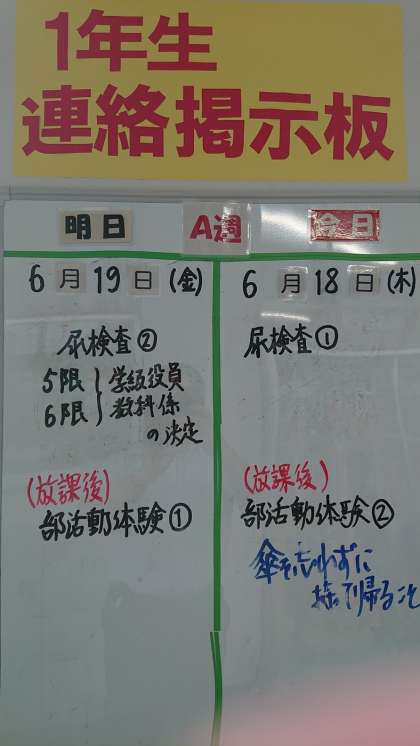 1年生
連絡掲示板
明日 A週 今日
6月19日(金)
尿検査②
5限 } 学級役員
6限 } 教科係
の決定
(放課後)
部活動体験①
6月18日(木)
尿検査①
(放課後)
部活動体験②
傘を忘れずに
持って帰ること